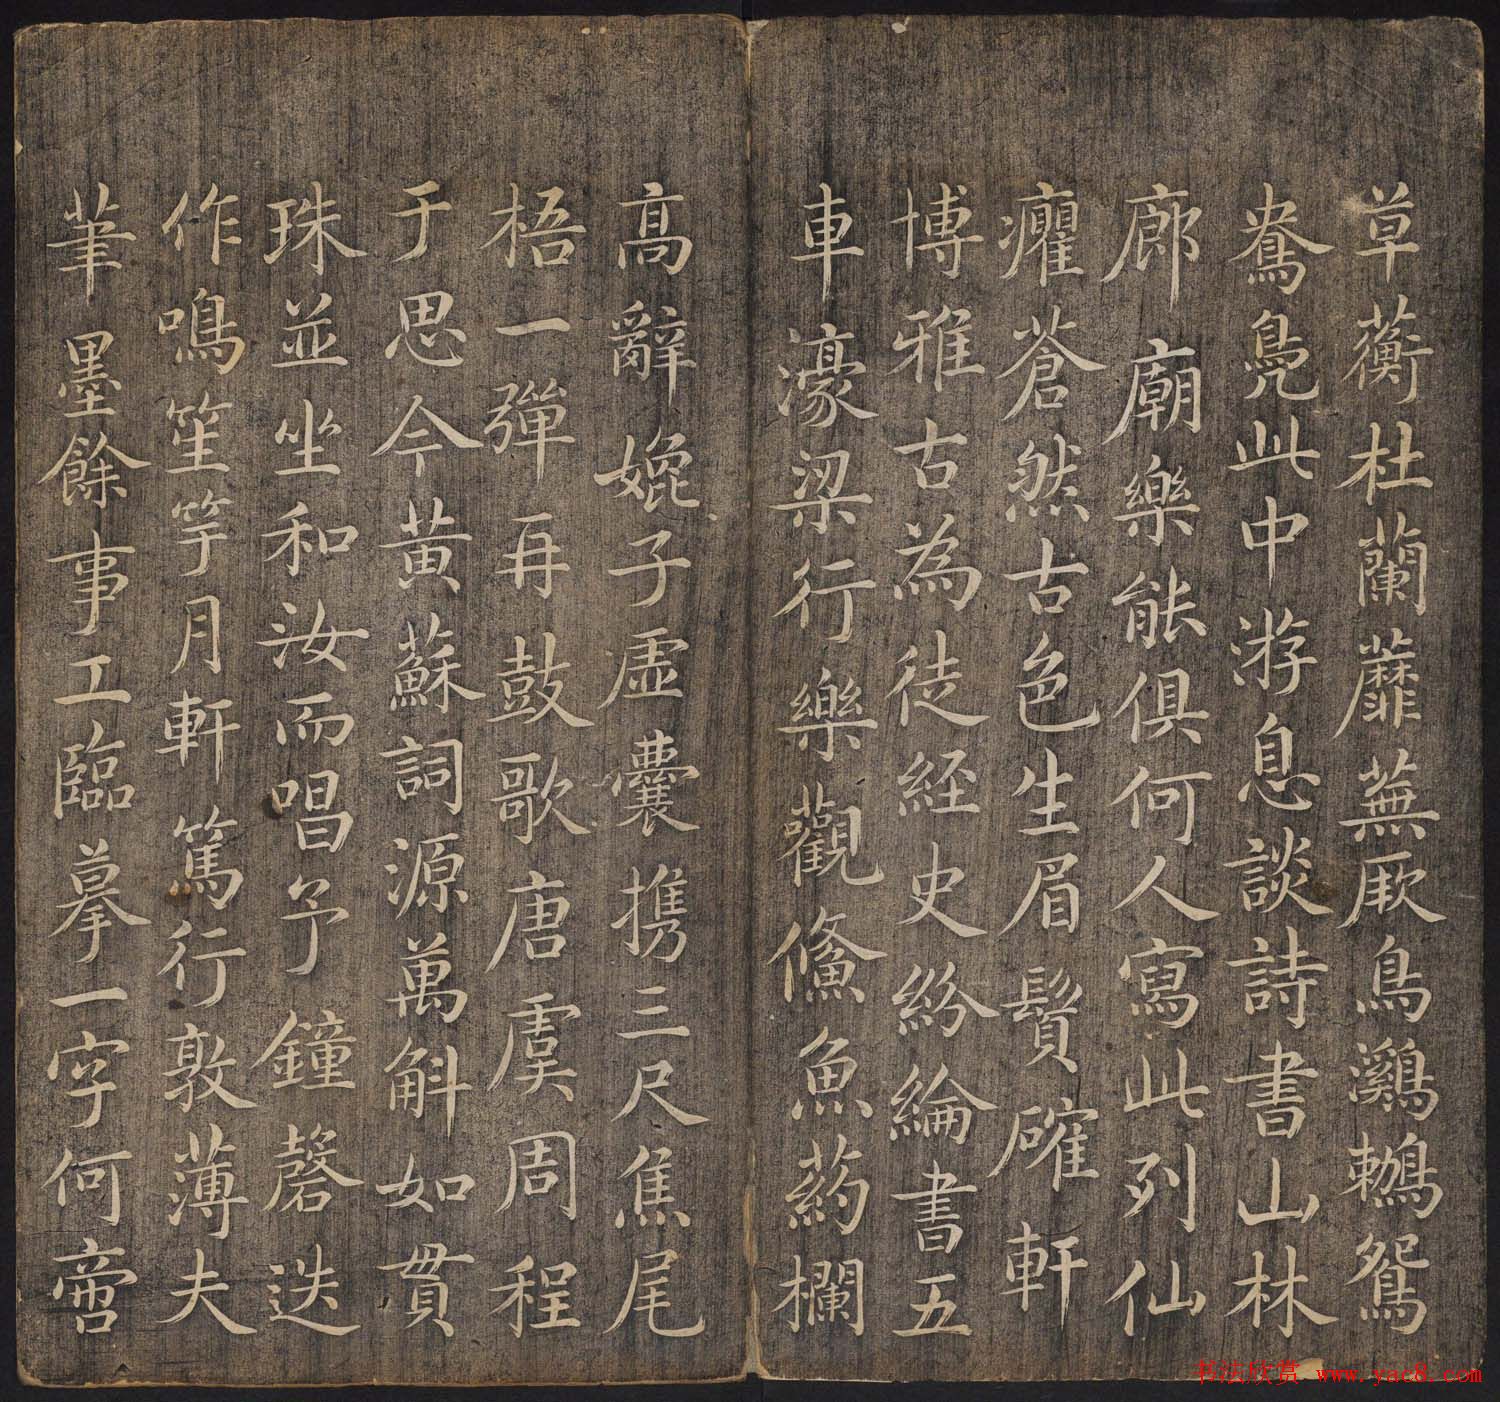 草蘅杜蘭蘼蕪厥鳥鸂鶒鴛
鴦鳧此中游息談詩書山林
廊廟樂能俱何人寫此列仙
癯蒼然古色生眉鬢確軒
博雅古為徒經史紛綸書五
車濠梁行樂觀儵魚药欄
高辭娩子虛囊携三尺焦尾
梧一彈再鼓歌唐虞周程
于思今黃蘇詞源萬斛如貫
珠並坐和汝而唱予鐘磬迭
作鳴笙竽月軒篤行敦薄夫
筆墨餘事工臨摹一字何啻
书法欣赏 www.yac8.com